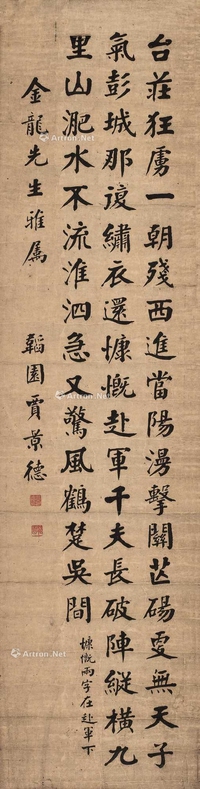 台莊狂虜一朝殘西進當陽漫擊關芒碭更無天子
氣彭城那復繡衣還慷慨赴軍千夫長破陣縱橫九
里山淝水不流淮泗急又驚風鶴楚吳間
慷慨兩字在赴軍下
金龍先生雅屬
韜園賈景德
Artron.Net